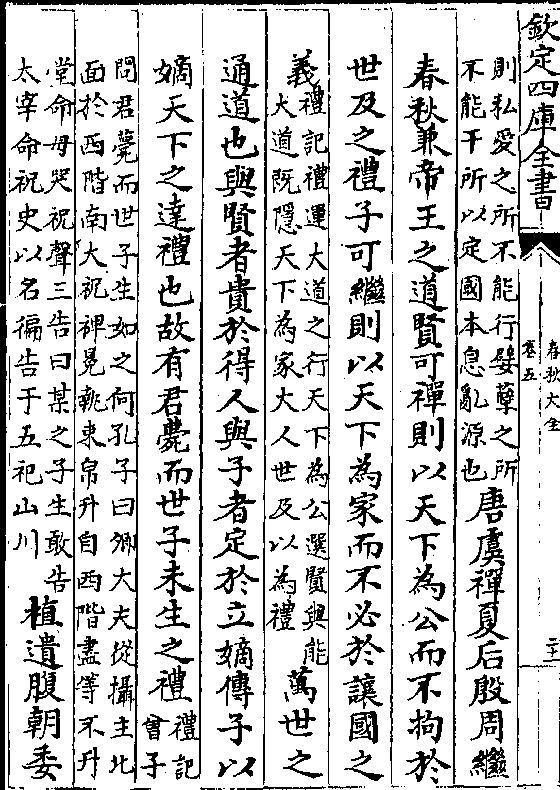 欽定四庫全書
春秋大全
卷五
二十一
則私愛之所不能行嬖孽之所
不能干所以定國本息亂源也
唐虞禪夏后殷周繼
春秋兼帝王之道賢可禪則以天下為公而不拘於
世及之禮子可繼則以天下為家而不必於讓國之
義
禮記禮運大道之行天下為公選賢與能
大道既隱天下為家大人世及以為禮
萬世之
通道也與賢者貴於得人與子者定於立嫡傳子以
嫡天下之達禮也故有君薨而世子未生之禮
禮記
曾子
問君薨而世子生如之何孔子曰卿大夫從攝主北
面於西階南大祝裨冕執束帛升自西階盡等不升
堂命毋哭祝聲三告曰某之子生敢告
太宰命祝史以名徧告于五祀山川
植遺腹朝委